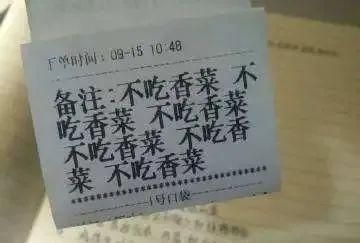 下单时间：09-15 10:48
备注：不吃香菜 不
吃香菜 不吃香菜
不吃香菜 不吃香
菜 不吃香菜
1号口袋